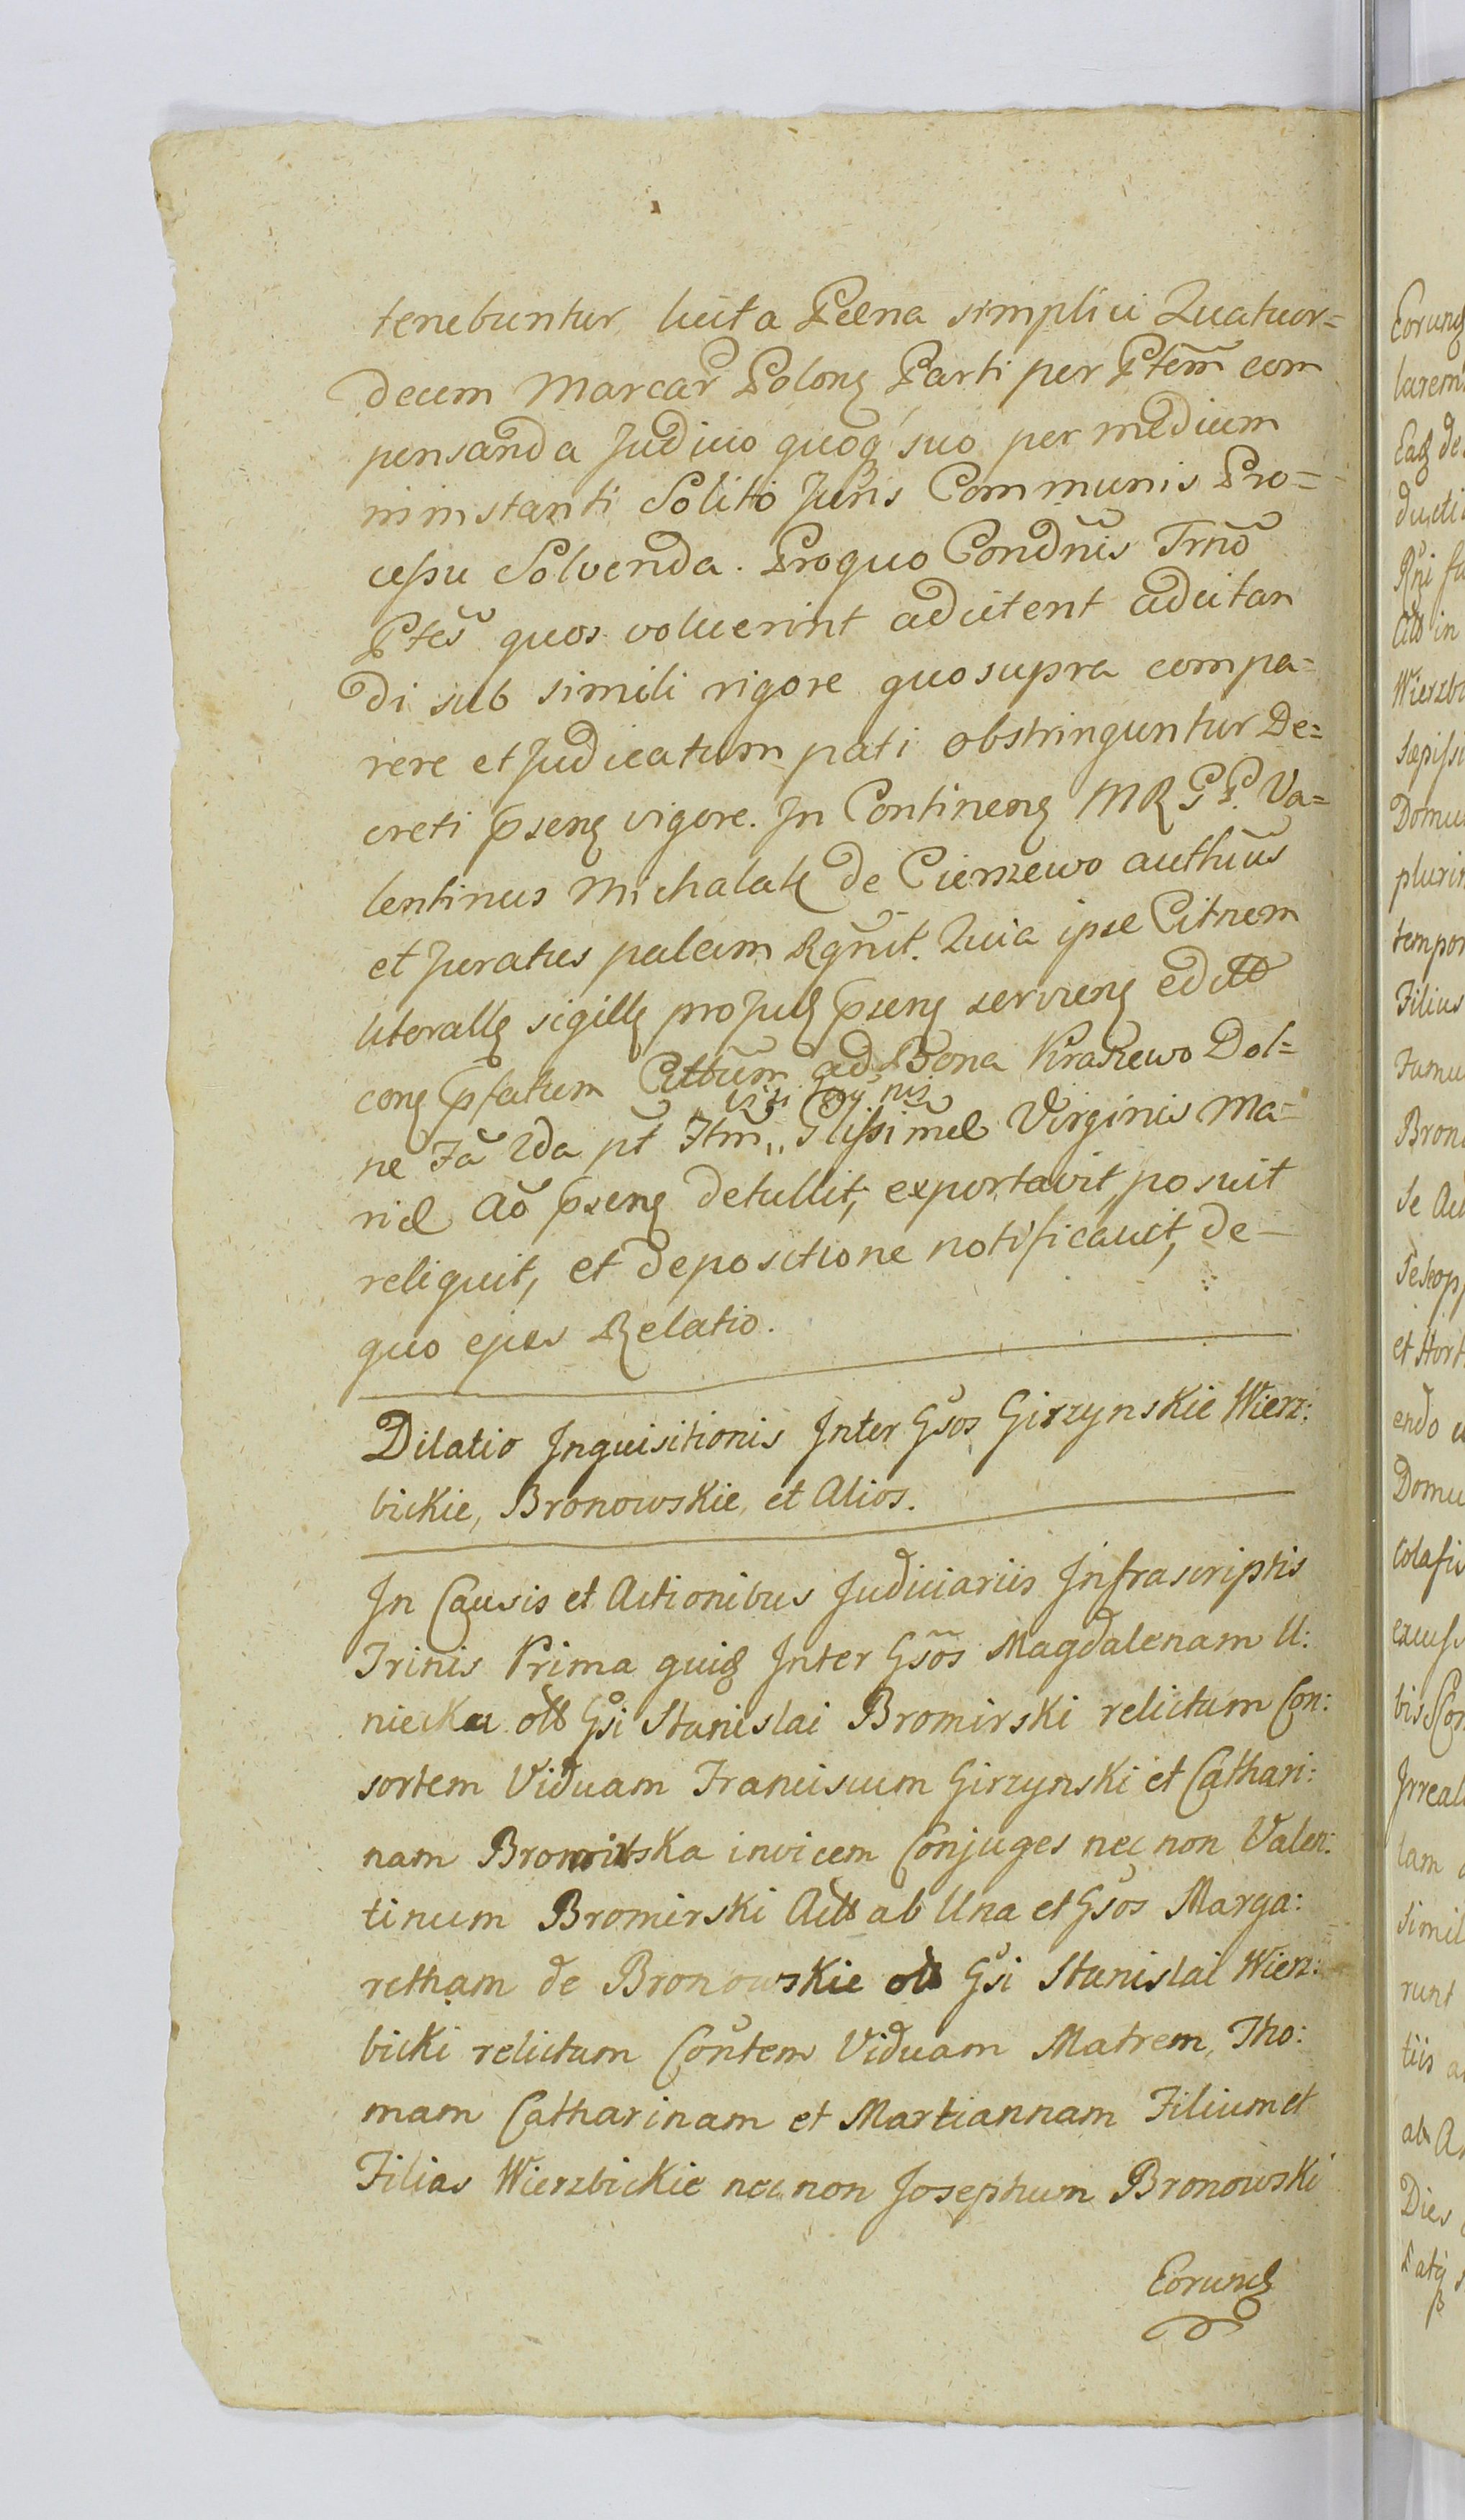 tenebuntur lucita Pœna simplici Quatuor=
decem Marcar̃ Polonꝫ Parti per Ptem̃ com
pensanda Judicio quoq́ suo per medium
ministanti Solito Juris Communis Pro=
cessu Solvenda. Proquo Condñis Trnõ
Ptes̃ quos voluerint adcitent adcitan
di sub simili rigore quo supra compa=
rere et Judicatum pati obstringuntur De=
creti pseng vigore. In Contineng MRGP. Va=
lentinus Michalak de Cierszewo authũs
et Juratus palam Rgñit. Quia ipse Citnem
literallꝫ sigillꝫ pro Judꝫ pseng servieng editt
cong psatum Cittum ad Bona Kraszewo Dol=
ne Fã 2da pt̃ Ftm̃ „ Glissimæ Virginis Ma=
riæ Aõ pseng detullit, exportavit, posuit
reliquit, et depositione notificavit, de-
quo ejus Relatio.
Dilatio Inquisitionis Inter Gsos Girzynskie Wierz:
bickie, Bronowskie et Alios.
In Causis et Actionibus Judiciariis Infrascriptis
Trinis Prima quiꝫ Inter Gsõs Magdalenam U:
niecka ott Gsi Stanislai Bromirski relictam Con:
sortem Viduam Franciscum Girzynski et Cathari:
nam Bromirska invicem Conjuges nec non Valen:
tinum Bromirski Actt ab Una et Gsos Marga:
retham de Bronowskie ott Gsi Stanislai Wierz:
bicki relictam Contem Viduam Matrem, Tho:
mam Catharinam et Martiannam Filium et
Filias Wierzbickie nec non Josephum Bronowski
Eorundꝫ
Eorundꝫ
larem
Eaꝫ de
ducti
Rñi fu
Actt in
Wierzbi
Sæpissi
Domu
plurim
tempor
Filius
Famu
Bron
se Au
seseopp
et Hort
endo e
Domu
Colafis
excuss
bis Con
Irreal
lam
Simil
runt
tiis a
ab A
Dies